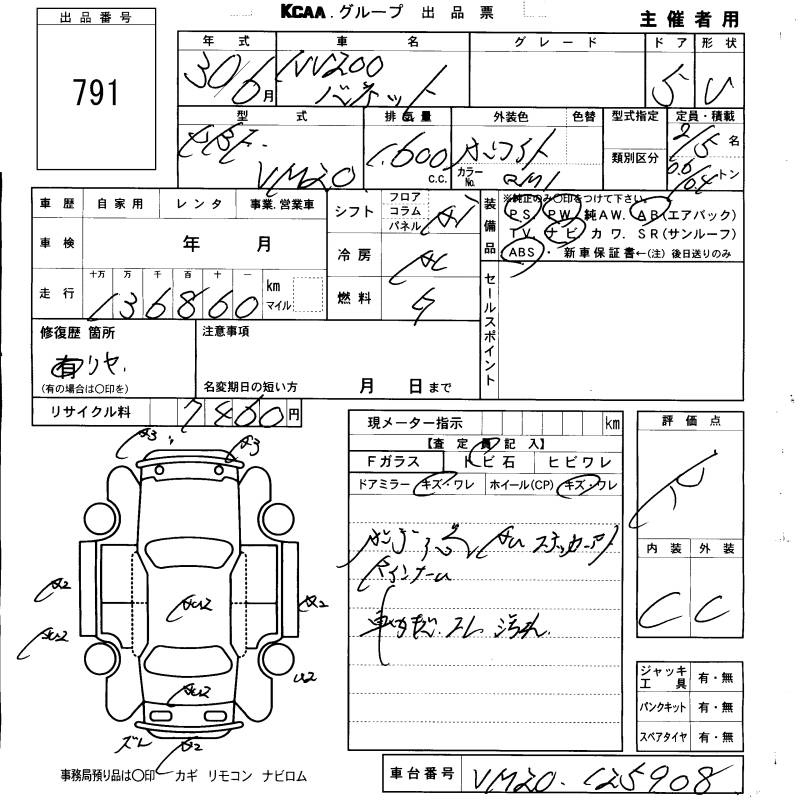 KCAA.グループ 出品票
主催者用
出品番号
791
年式 車名 グレード ドア 形状
30/6月 NV200 バネット 5 V
型式 排気量 外装色 色替 型式指定 定員・積載
DBF-VM20 1,600 c.c. カラーNo. QM1 類別区分 2/5名
0.6/0.4トン
車歴 自家用 レンタ 事業.営業車
車検 年 月
走行 十万 万 千 百 十 一 km マイル
136860
シフト フロア コラム パネル AT
冷房 AC
燃料 G
装備品
※純正のみ〇印をつけて下さい。
PS. PW. 純AW. AB(エアバック)
TV. ナビ カワ. SR(サンルーフ)
ABS・ 新車保証書←(注)後日送りのみ
セールスポイント
修復歴 箇所
有 リヤ.
(有の場合は〇印を)
注意事項
名変期日の短い方 月 日まで
リサイクル料 7400円
現メーター指示 km
【査定員記入】
Fガラス トビ石 ヒビワレ
ドアミラー キズ・ワレ ホイール(CP) キズ・ワレ
車内キズ. スレ 汚れ.
評価点
R
内装 外装
C C
ジャッキ工具 有・無
パンクキット 有・無
スペアタイヤ 有・無
A3 A3
A2 AU2 A2
AU2 U2
AU2
ズレ A2
事務局預り品は〇印 カギ リモコン ナビロム
車台番号 VM20-125908